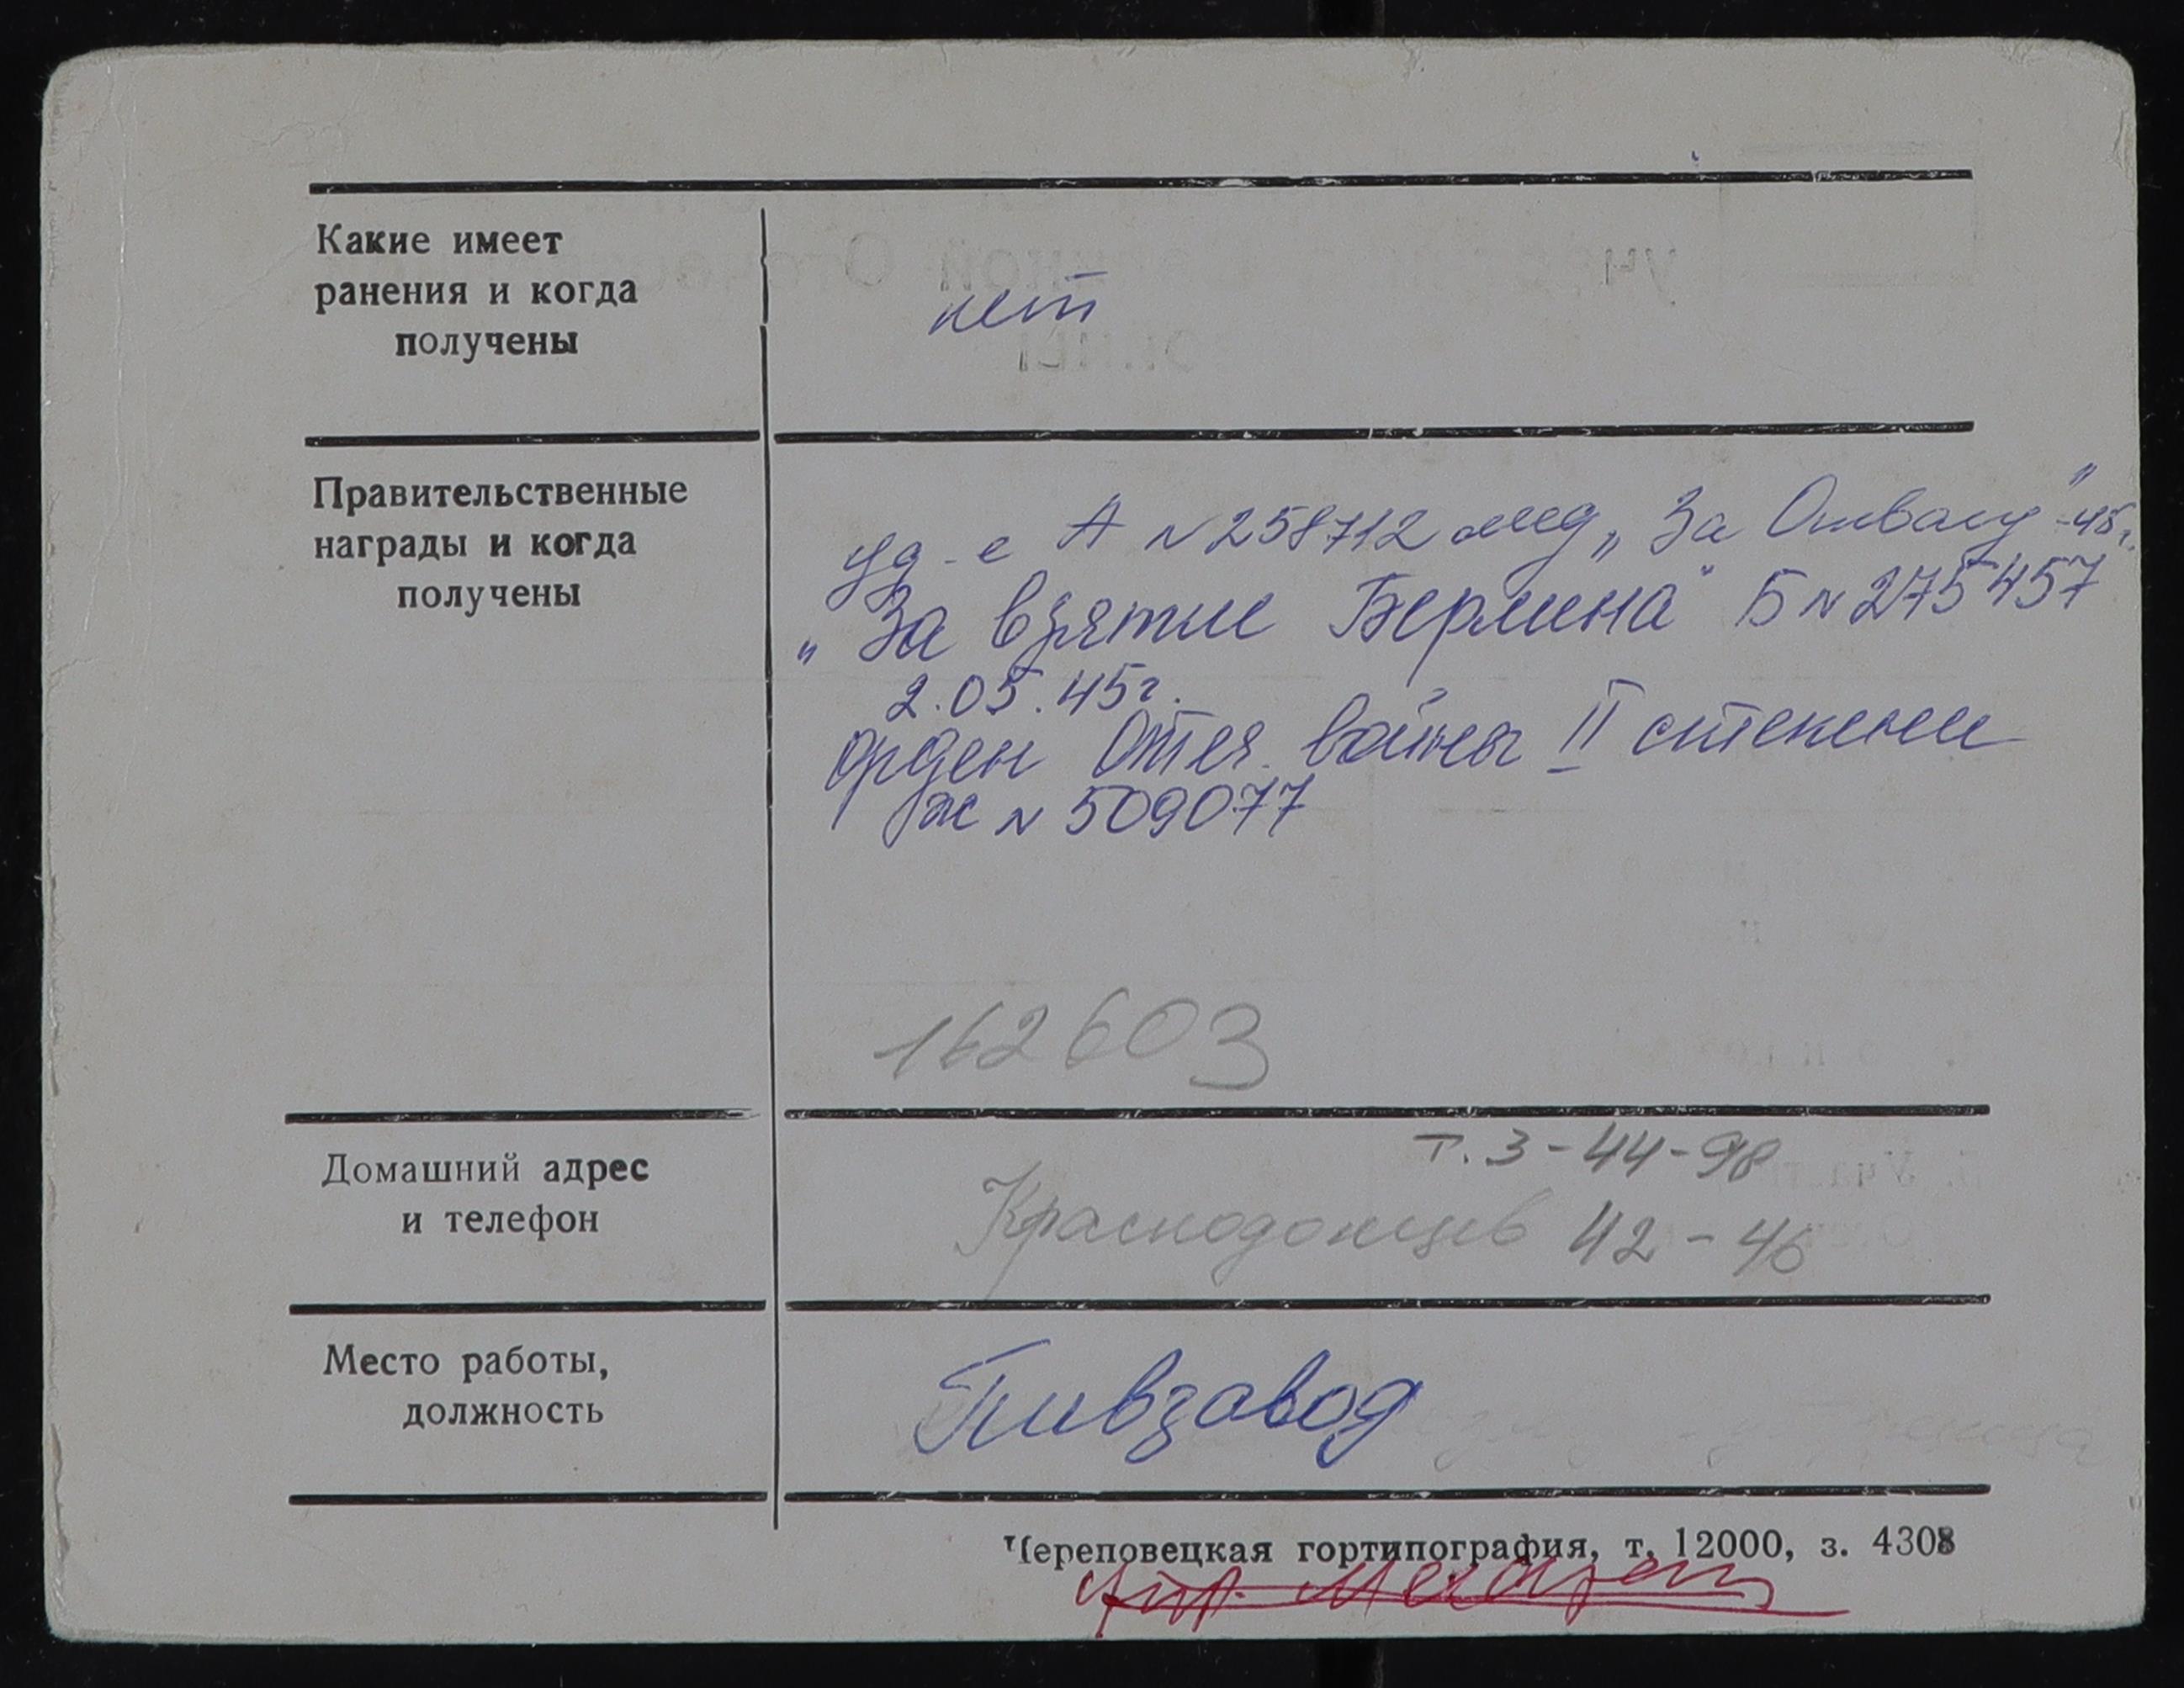 Какие имеет
ранения и когда
получены
нет
Правительственные
награды и когда
получены
уд-е А N 258712 мед „За Отвагу" -45г.
„За взятие Берлина" Б N 275457
2.05.45г.
орден Отеч. войны II степени
Ж N 509077
162603
Домашний адрес
и телефон
т. 3-44-98
Краснодонцев 42-46
Место работы,
должность
Пивзавод
Череповецкая гортипография, т. 12000, з. 4308